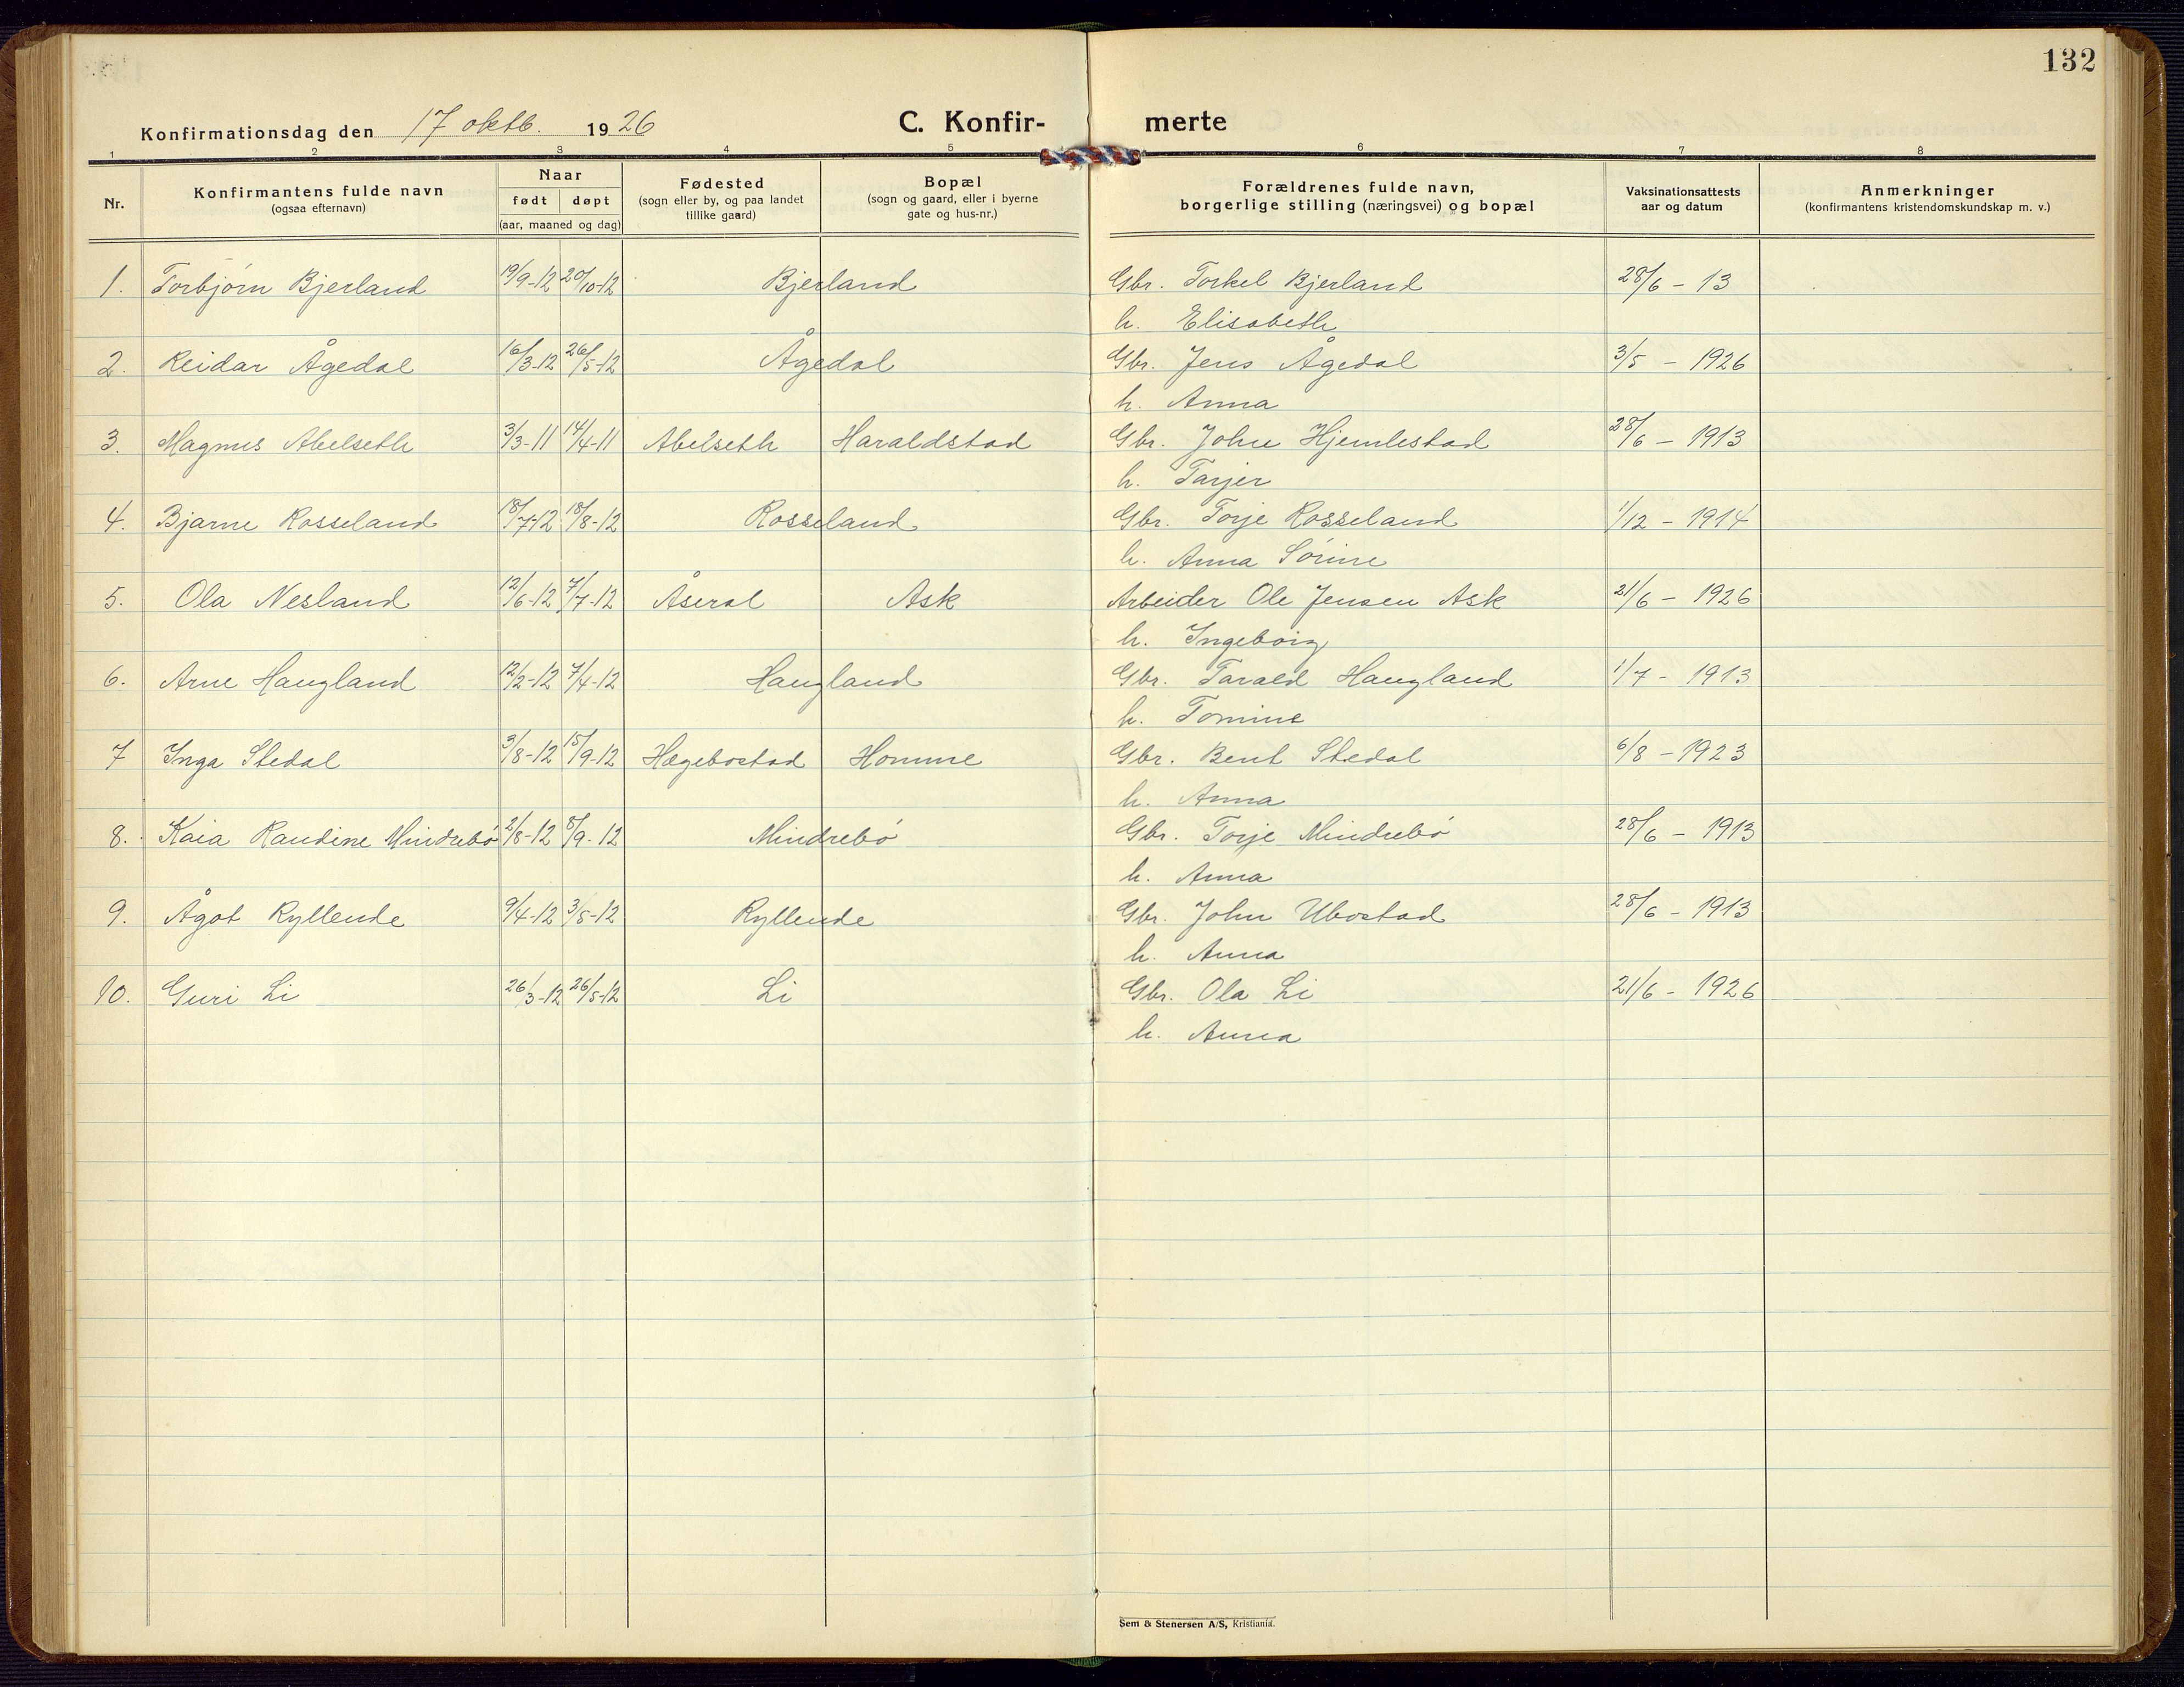 132
Konfirmationsdag den 17 oktb. 1926 C. Konfir- merte
1 2 3 4 5 6 7 8
Nr.
Konfirmantens fulde navn
(ogsaa efternavn)
Naar
født døpt
(aar, maaned og dag)
Fødested
(sogn eller by, og paa landet
tillike gaard)
Bopæl
(sogn og gaard, eller i byerne
gate og hus-nr.)
Forældrenes fulde navn,
borgerlige stilling (næringsvei) og bopæl
Vaksinationsattests
aar og datum
Anmerkninger
(konfirmantens kristendomskundskap m. v.)
1. Torbjørn Bjerland 19/9-12 20/10-12 Bjerland Gbr. Torkel Bjerland 28/6 - 13
h. Elisabeth
2. Reidar Ågedal 16/3-12 26/5-12 Ågedal Gbr. Jens Ågedal 3/5 - 1926
h. Anna
3. Magnus Abelseth 3/3-11 14/4-11 Abelseth Haraldstad Gbr. John Hjemlestad 28/6 - 1913
h. Tarjer
4. Bjarne Rosseland 18/7-12 18/8-12 Rosseland Gbr. Torje Rosseland 1/12 - 1914
h. Anna Sørine
5. Ola Nesland 12/6-12 7/7-12 Åseral Ask Arbeider Ole Jensen Ask 21/6 - 1926
h. Ingeborg
6. Arne Haugland 12/2-12 7/4-12 Haugland Gbr. Tarald Haugland 1/7 - 1913
h. Tomine
7 Inga Stedal 3/8-12 15/9-12 Hægebostad Homme Gbr. Bent Stedal 6/8 - 1923
h. Anna
8. Kaia Randine Mindrebø 2/8-12 8/9-12 Mindrebø Gbr. Torje Mindrebø 28/6 - 1913
h. Anna
9. Ågot Ryllende 9/4-12 3/5-12 Ryllende Gbr. John Ubostad 28/6 - 1913
h. Anna
10. Guri Li 26/3-12 26/5-12 Li Gbr. Ola Li 21/6 - 1926
h. Anna
Sem & Stenersen A/S, Kristiania.